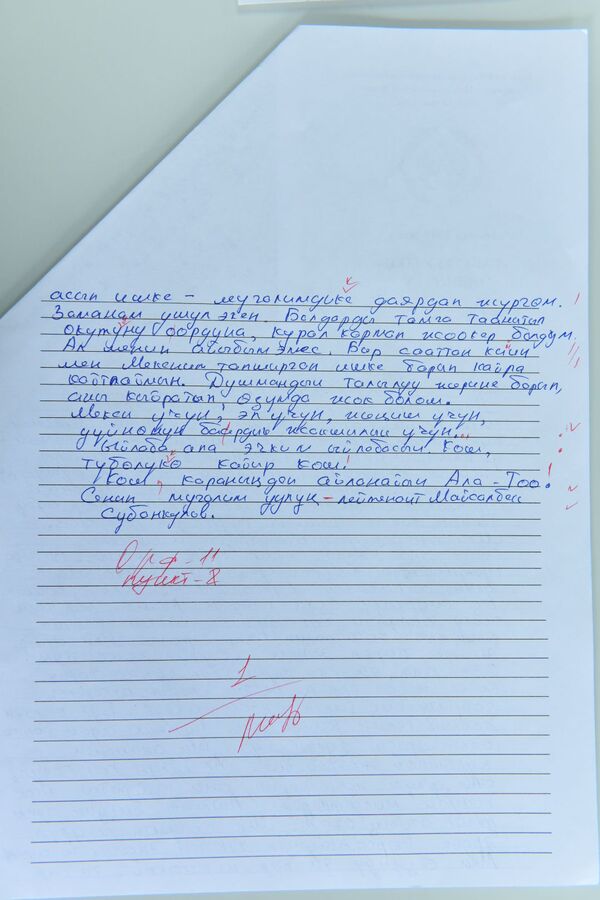 асыл ишке - мугалимдике даярдап жүргөм.
Заманам ушул экен. Балдарды тамга таанытып
окутуну ордуна, курал кармап жоокер болдум.
Ал менин айыбым эмес. Бир сааттан кийин
мен Мекеним тапшырган ишке барып кайра
кайтпайман. Душмандын талылуу жерине барып,
аны кыйратып өзүмдө жок болом.
Мекен үчүн, эл үчүн, жеңиш үчүн,
дүйнөнүн баардык жакшылык үчүн...
Ыйлаба апа эчким ыйлабасын. Кош,
түбөлүкө кайыр кош!
Кош, караныңдан айланайын Ала-Тоо!
Сенин мугалим уулуң - лейтенант Майсалбек
Субанкулов.
Орф-11
пункт-8
1